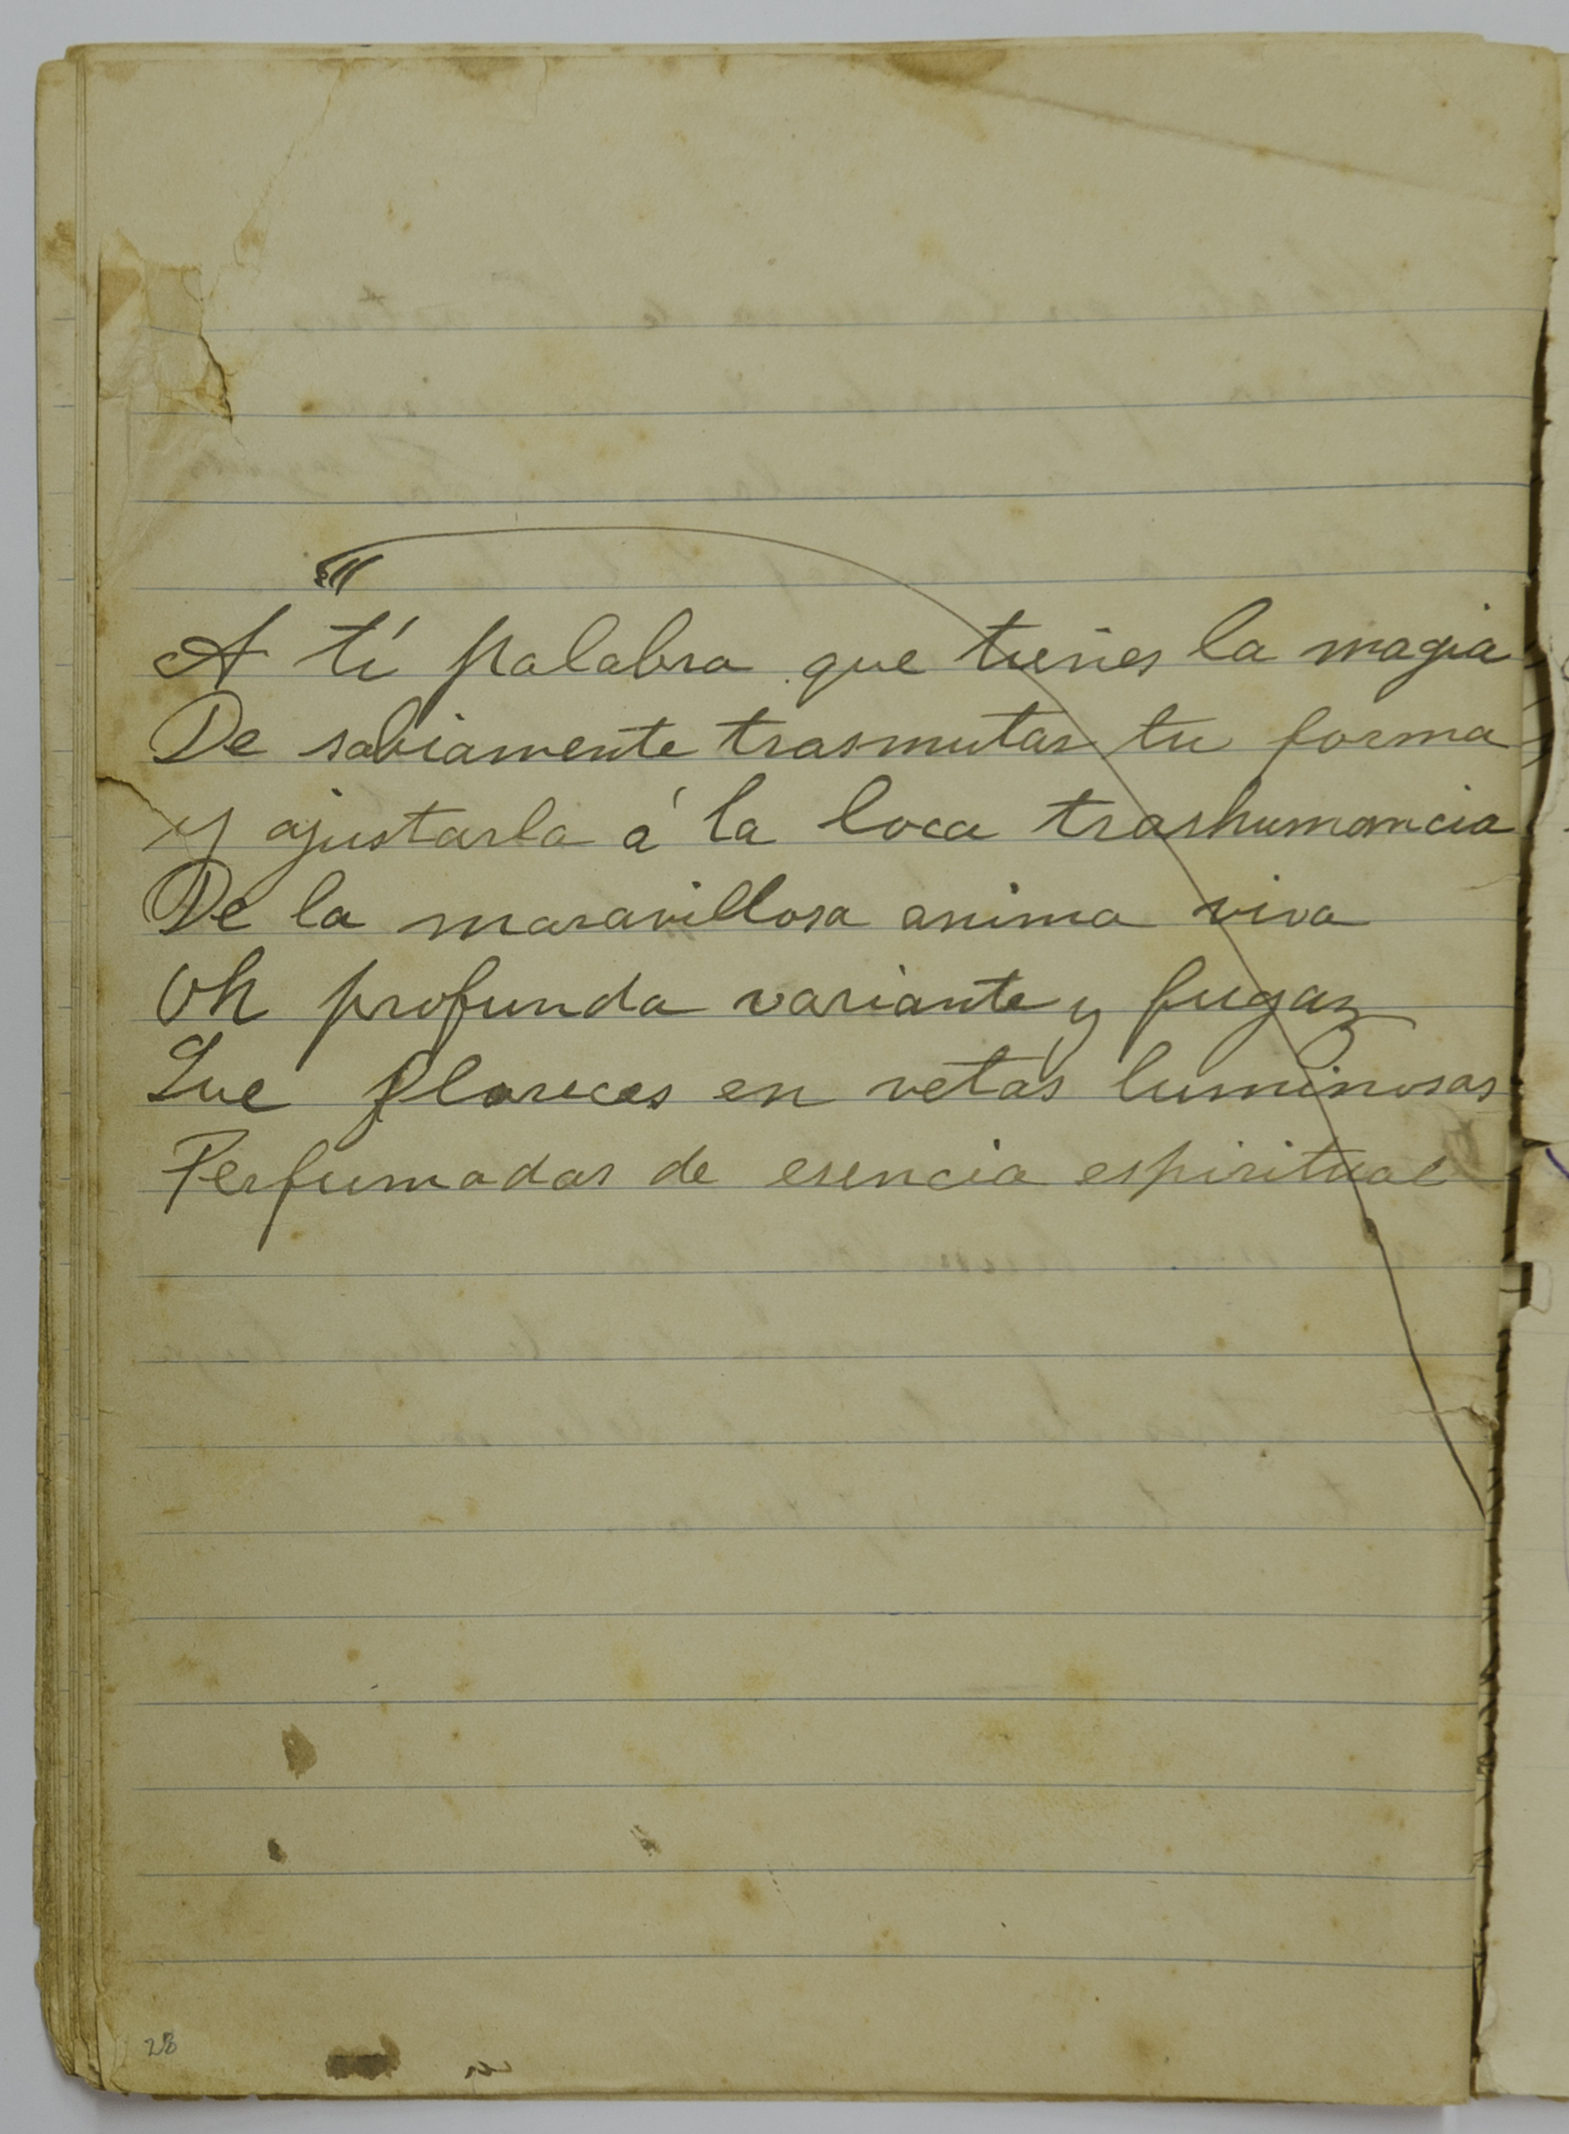 A tí palabra que tienes la magia
De sabiamente trasmutar tu forma
y ajustarla á la loca trashumancia
De la maravillosa anima viva
Oh profunda variante y fugaz
Que floreces en vetas luminosas
Perfumadas de esencia espiritual
28